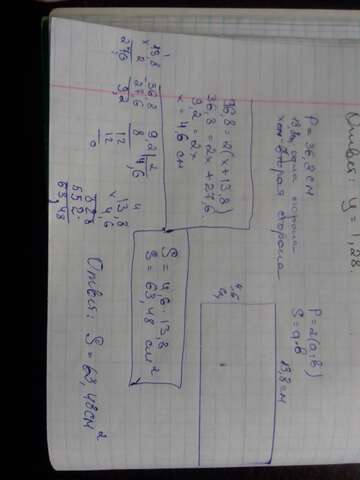 Ответ: у = 1,28.
P = 36,8 см
13,8 одна сторона
x см вторая сторона
P = 2(a+b)
S = a·b
36,8 = 2(x + 13,8)
36,8 = 2x + 27,6
9,2 = 2x
x = 4,6 см
13,8 см
4,6 см
13,8
× 2
27,6
36,8
27,6
9,2
9,2 | 2
8 4,6
12
12
0
13,8
× 4,6
828
552
63,48
S = 4,6 · 13,8
S = 63,48 см²
Ответ: S = 63,48 см²